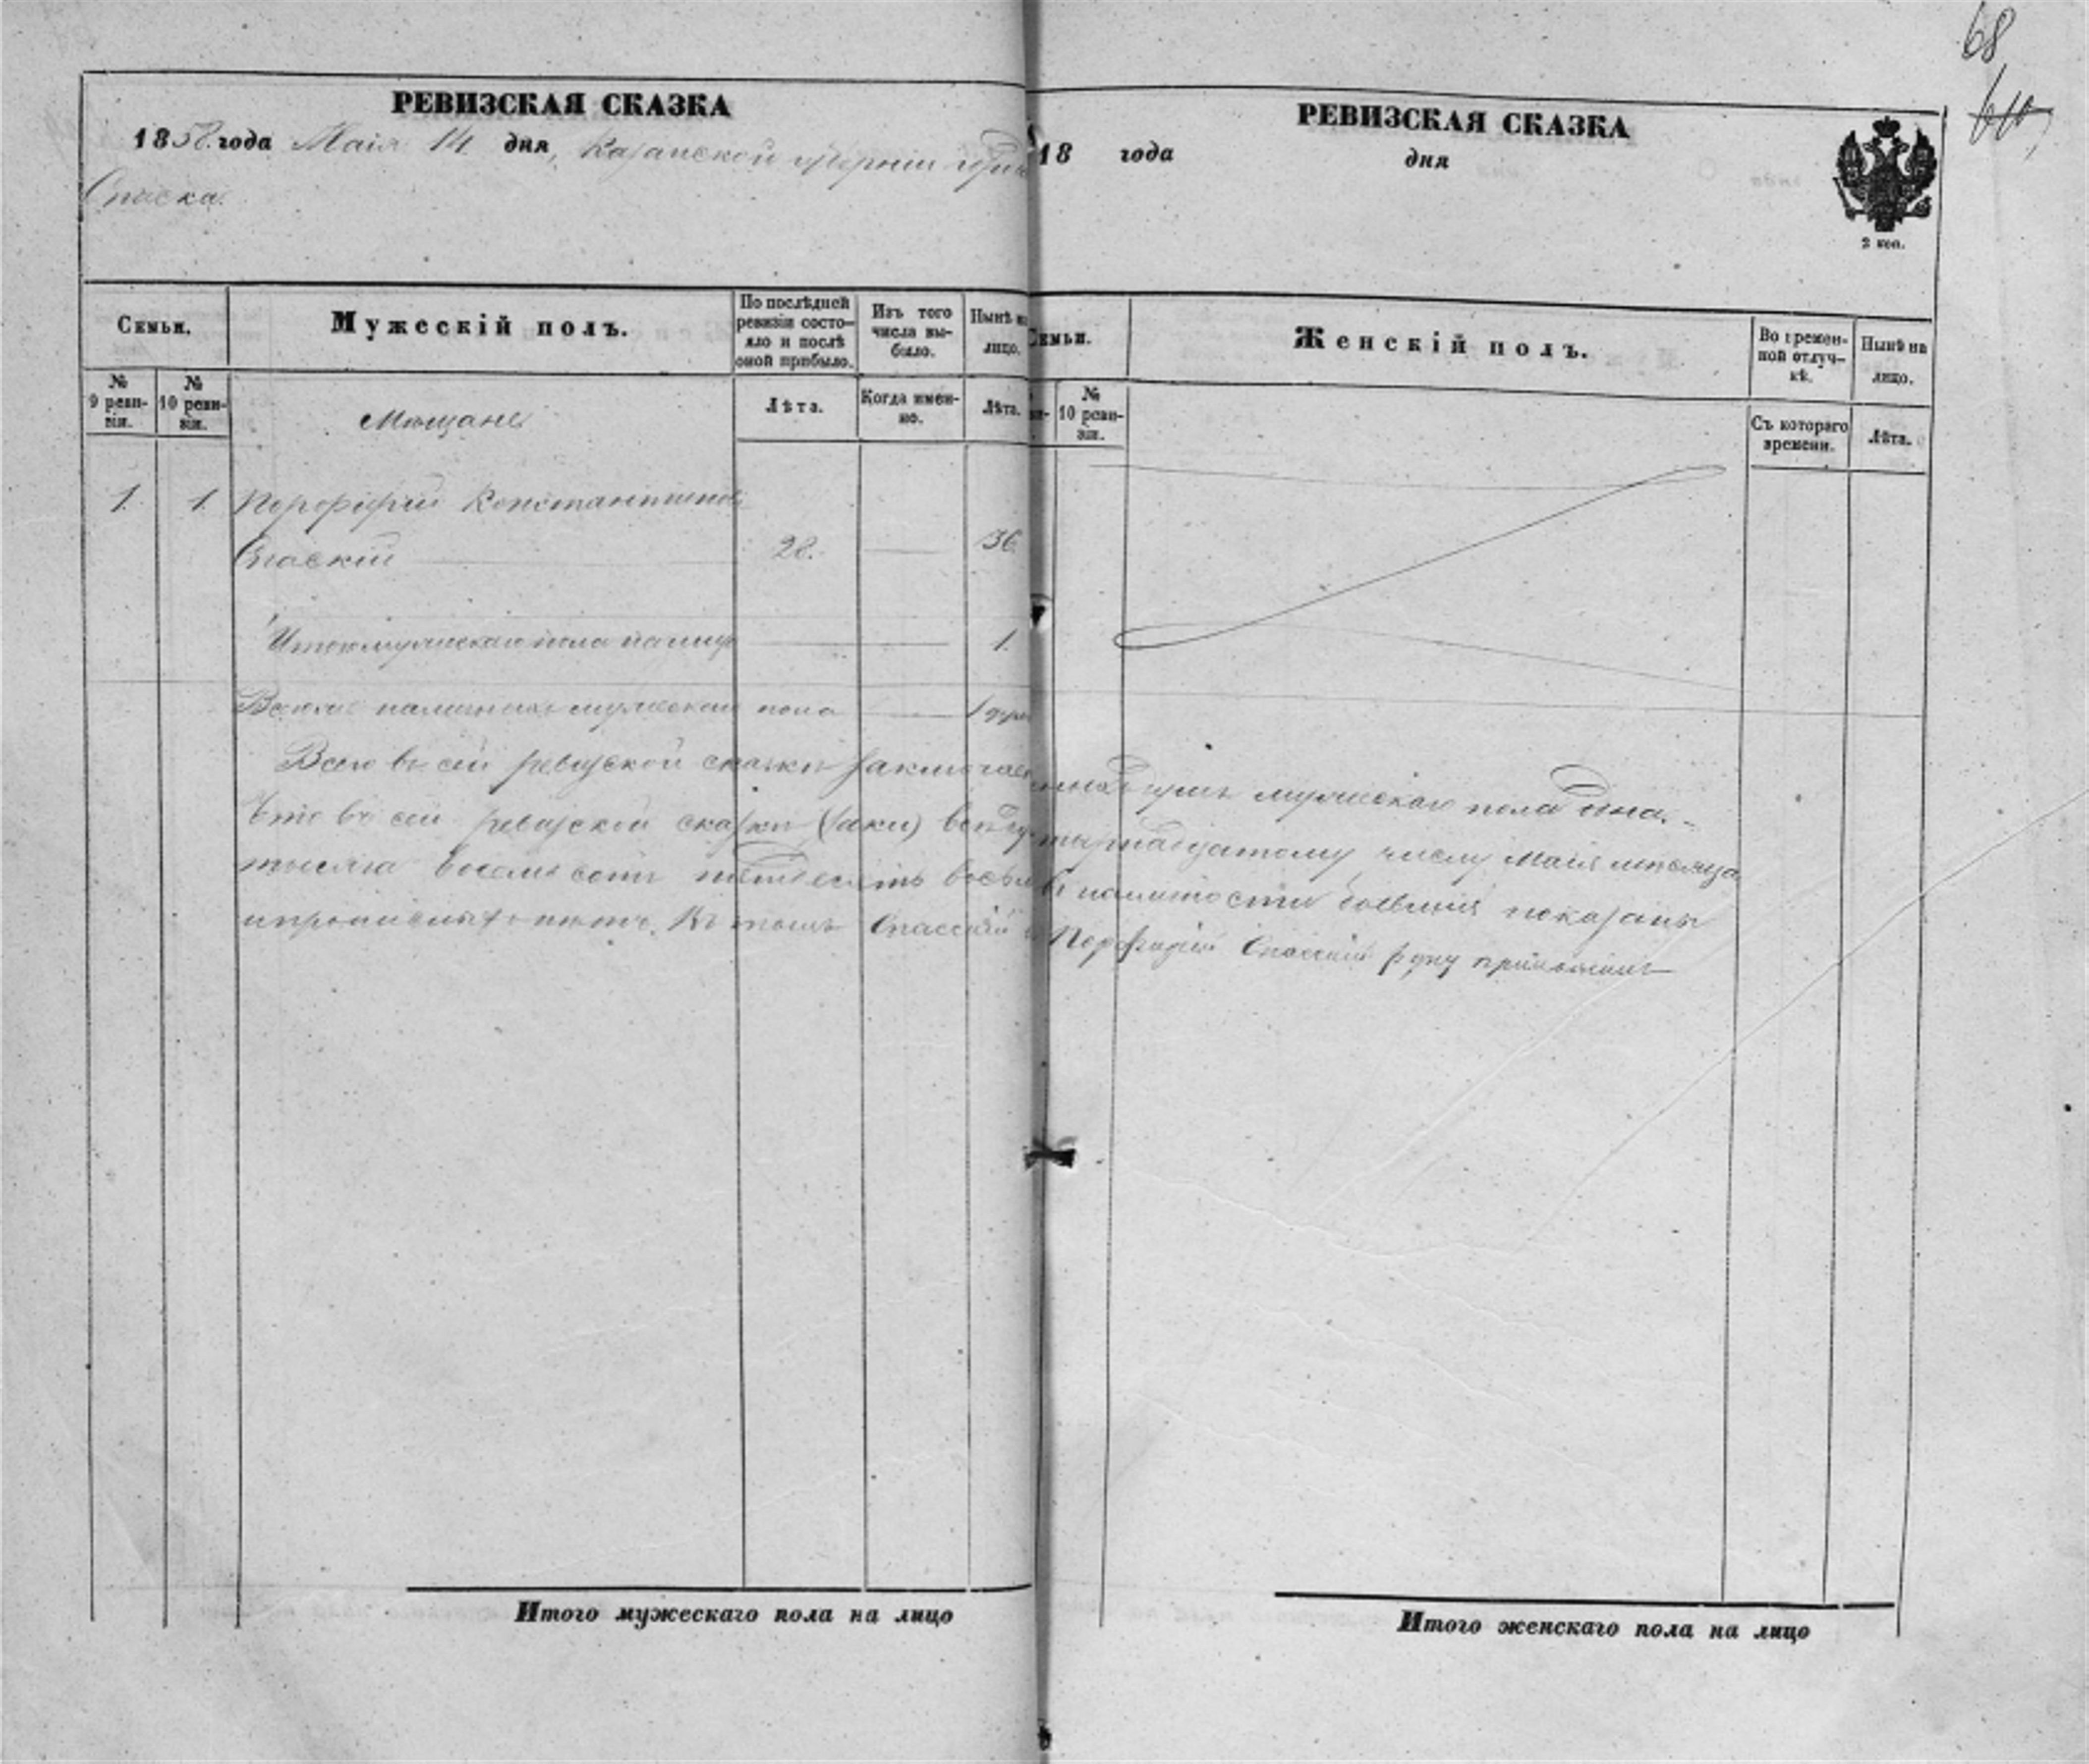 68
РЕВИЗСКАЯ СКАЗКА
1858 года Маія 14 дня, Казанской губерніи города
Спаска.
РЕВИЗСКАЯ СКАЗКА
18 года дня
2 коп.
Семьи.
Мужескій полъ.
По послѣдней ревизіи состояло и послѣ оной прибыло.
Изъ того числа выбыло.
Нынѣ на лицо.
№ 9 ревизіи.
№ 10 ревизіи.
Мѣщане
Лѣта.
Когда именно.
Лѣта.
1. 1. Порфирий Константиновъ
Спаскій 28. 36.
Итого мужескаго пола на лицо 1.
Всего же наличныхъ мужескаго пола 1 душа
Семьи.
Женскій полъ.
Во временной отлучкѣ.
Нынѣ на лицо.
№ 10 ревизіи.
Съ котораго времени.
Лѣта.
Всего въ сей ревизской сказкѣ заключается душъ мужескаго пола одна.
Что въ сей ревизской сказки числу Маія мѣсяца
тысяча восемь сотъ пятьдесятъ въ наличности показаны
Въ томъ Спасскій Порфирій Спасскій руку приложилъ
Итого мужескаго пола на лицо
Итого женскаго пола на лицо